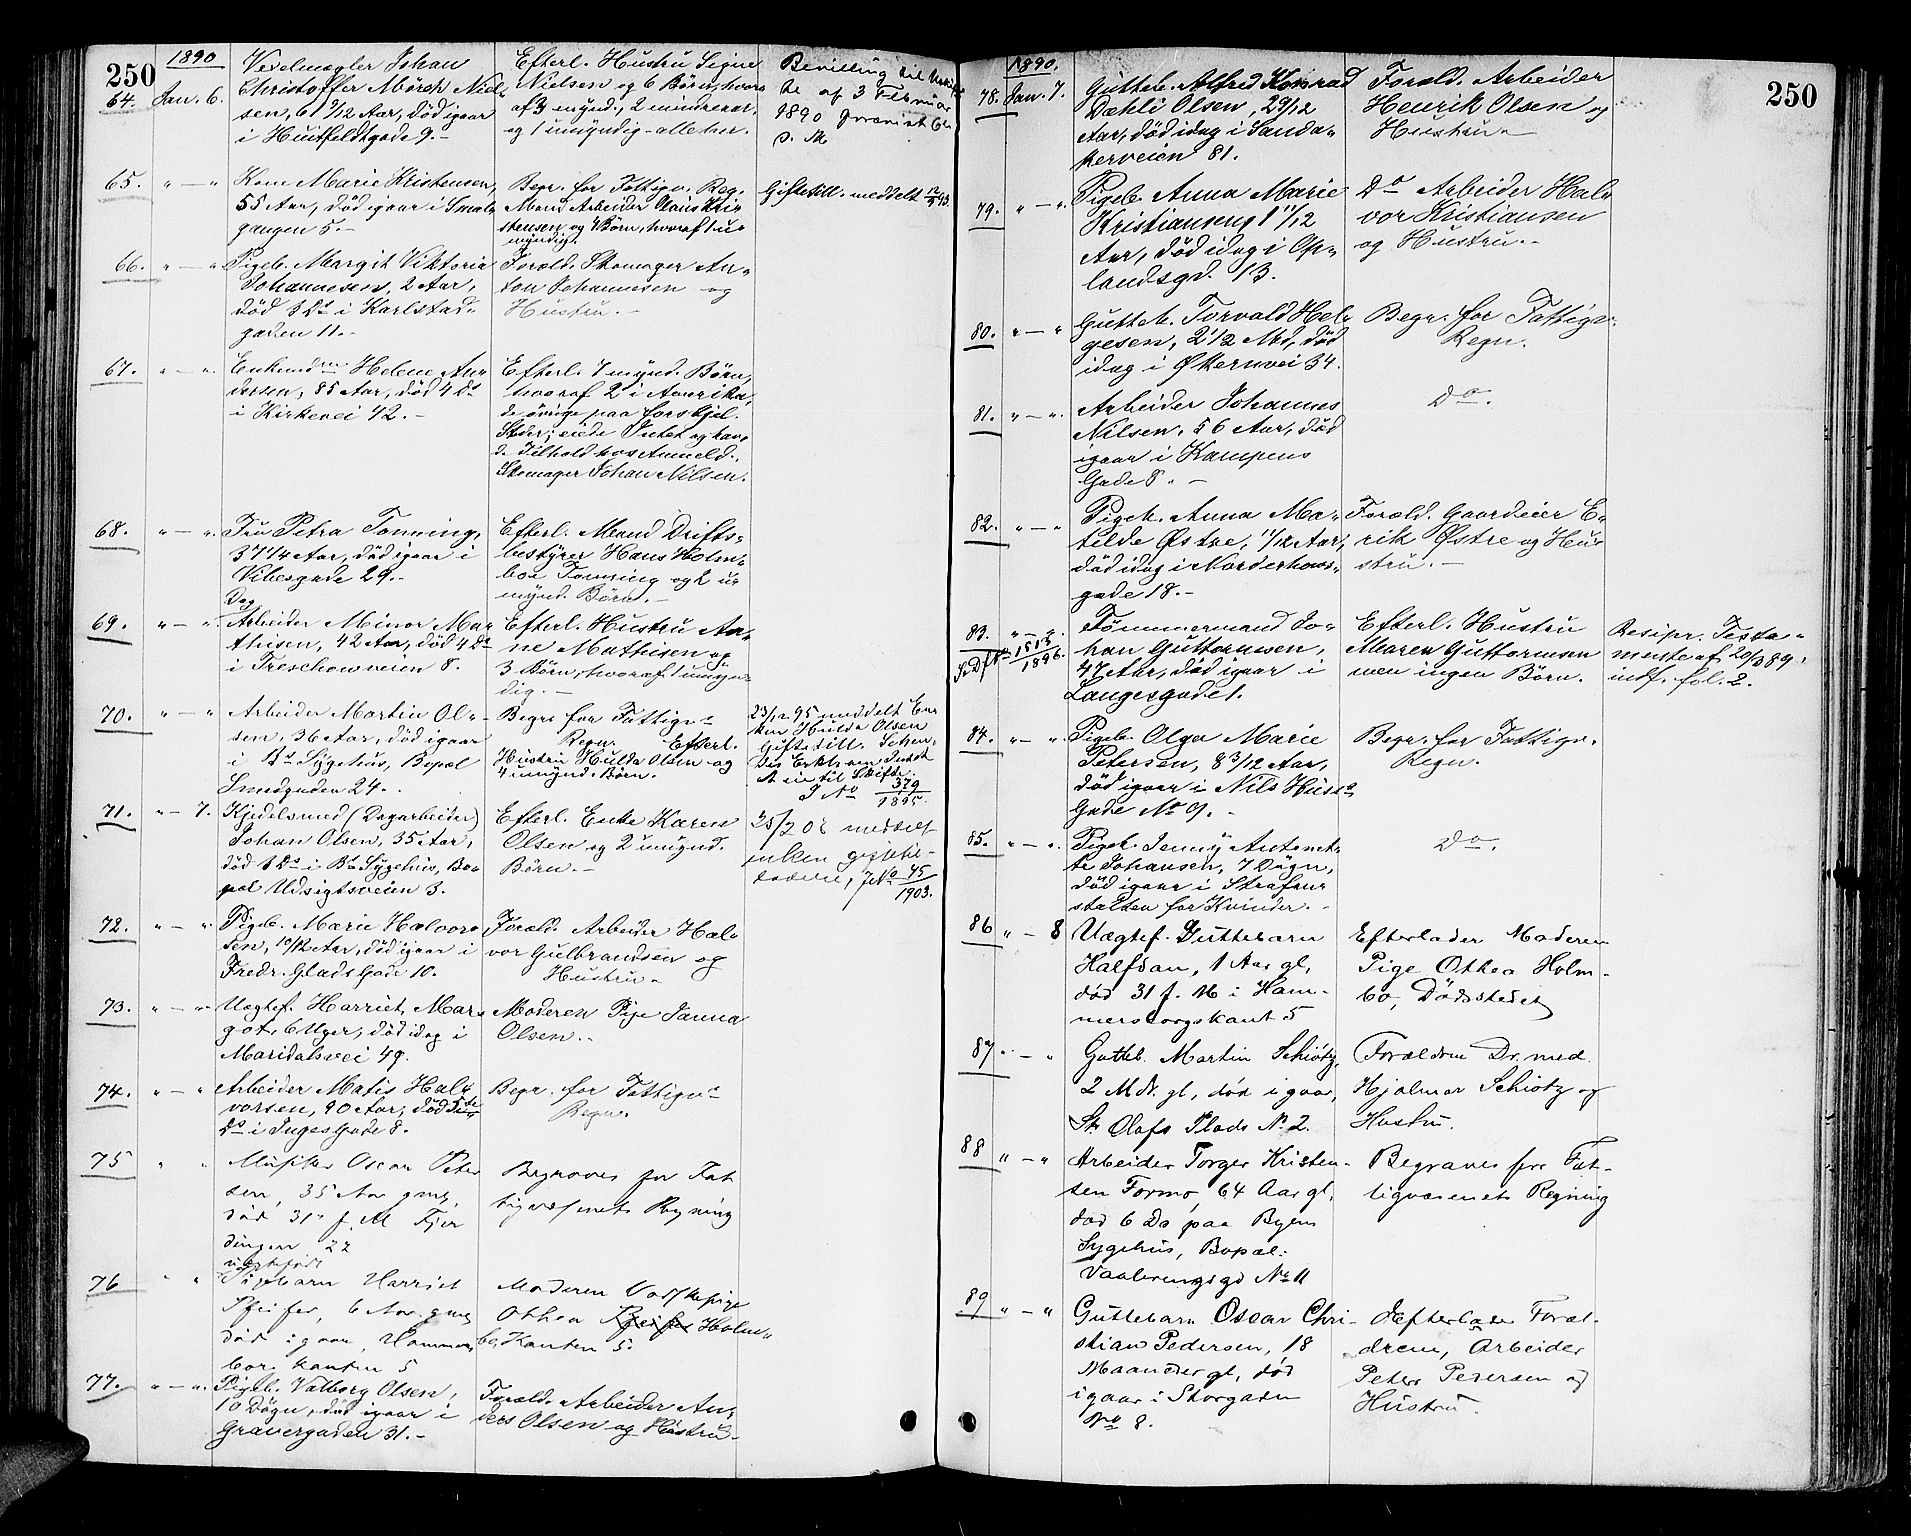 250
1890
64. Jan. 6. Vexelmægler Johan
Christoffer Mörch Niel-
sen, 61 9/12 Aar, död igaar
i Huitfeldtgade 9.-
Efterl. Hustru Signe
Nielsen og 6 Börn, hvoraf
af 3 mynd., 2 mindreaar.
og 1 umyndig - alle her.
Bevilling til
af 3 Februar
1890
65. " — " Kone Marie Kristensen,
55 Aar, död igaar i Smal-
gangen 5.-
Begr. for Fattigv. Reg.
Mand Arbeider Olaus Kri-
stensen og Börn, hvoraf 1 u-
myndig.
Giftetill. meddelt
66. " — " Pigeb. Margit Viktoria
Johannesen, 2 Aar,
död 3 Ds i Karlstad-
gaden 11.-
Foræld. Skomager An-
ton Johannesen og
Hustru.-
67. " — " Enkemd Helene An-
dersen, 85 Aar, död 4 Ds
i Kirkevei 42.-
Efterl. 7 mynd. Börn,
hvoraf 2 i Amerika,
de övrige paa forskjel.
Steder; eiede Intet og hav-
de Tilhold hos Anmeld.
Skomager Johan Nilsen.
68. " — " Fru Petra Tonning,
37 1/4 Aar, död igaar i
Vibesgade 29.-
Efterl. Mand Drifts-
bestyrer Hans Holm-
boe Tonning og 2 u-
mynd. Börn.-
69. " — " Dag
Arbeider Minor Ma-
thisen, 42 Aar, död 4 Ds
i Treschowveien 8.
Efterl. Hustru An-
ne Mathisen og
3 Börn, hvoraf 1 umyn-
dig.-
70. " — " Arbeider Martin Ol-
sen, 36 Aar, död igaar
i Bs Sygehus, Bopæl
Smedgaden 24.-
Begr. for Fattigv.
Regn. Efterl.
Hustru Hulda Olsen og
4 umynd. Börn.
23/12 95 meddelt En-
ken Hulda Olsen
Giftetill.
Intet
at eie til Skifte.
J No 379
1895.
71. " — 7. Kjedelsmed (Dagarbeider)
Johan Olsen, 35 Aar,
död 3 Ds i Bs Sygehus, Bo-
pæl Udsigtsveien 3.
Efterl. Enke Karen
Olsen og 2 umynd.
Börn.-
meddelt
enken giftetil-
ladelse, JNo 45
1903.
72. " — " Pigeb. Marie Halvor-
sen, 10/12 Aar, död igaar i
Fredr. Glads Gade 10.
Foræld. Arbeider Hal-
vor Gulbrandsen og
Hustru.
73. " — " Uægtef. Harriet Mar-
got, 6 Uger, död idag i
Maridalsvei 49.
Moderen Pige Janna
Olsen.-
74. " — " Arbeider Matis Hal-
vorsen, 90 Aar, död 5te
Ds i Inges Gade 8.
Begr. for Fattigv.
Regn.
75 " " Musiker Oscar Peter
sen, 35 Aar gml,
död 31 f. M Fjer
dingen 22
Begraves for Fat
tigvæsenets Regning
76 " " uægtefødt
Pigebarn Harriet
Pfeifer, 6 Aar gml
död igaar, Hammers
bor. kanten 5
Moderen Vaskepige
Othea Pfeifer Holm-
bo, Kanten 5.
77. " — " Pigeb. Valborg Olsen,
10 Dögn, död igaar i
Gravergaden 31.-
Foræld. Arbeider An-
ders Olsen og Hustru-
250
1890.
78. Jan. 7. Gutteb. Alfred Konrad
Dæhli Olsen, 2 9/12
Aar, död idag i Sanda-
kerveien 81.
Foræld. Arbeider
Henrik Olsen og
Hustru.-
79. " — " Pigeb. Anna Marie
Kristiansen, 1 11/12
Aar, död idag i Op-
landsgd. 13.
Do Arbeider Hal-
vor Kristiansen
og Hustru.-
80. " — " Gutteb. Torvald Hel-
gesen, 2 1/2 Md, död
idag i Økernvei 34.
Begr. for Fattigv.
Regn.
81. " — " Arbeider Johannes
Nilsen, 56 Aar, död
igaar i Kampens
Gade 8.-
Do.
82. " — " Pigeb. Anna Ma-
tilde Østre, 11/12 Aar,
död idag i Norderhovs-
gade 18.-
Foræld. Gaardeier E-
rik Østre og Hu-
stru.-
83. " — " 1513
1896.
Tömmermand Jo-
han Guttormsen,
47 Aar, död igaar i
Langesgade 1.
Efterl. Hustru
Maren Guttormsen
men ingen Börn.
Resipr. Testa-
mente af 20/3 89,
indf. fol. 2.
84. " — " Pigeb. Olga Marie
Petersen, 8 3/12 Aar,
död igaar i Nils Huus
Gade No 9.-
Begr. for Fattigv.
Regn.
85. " — " Pigeb. Jenny Antonet-
te Johansen, 7 Dögn,
död igaar i Strafan-
stalten for Kvinder.-
Do.
86 " — 8 Uægtef. Guttebarn
Halfdan, 1 Aar gl,
død 31 f. M i Ham-
mersborgskant 5
Efterlader Moderen
Pige Othea Holm-
bo, Dödsstedet
87 " — " Gutteb. Martin Schiötz,
2 Mdr. gl, död igaar,
St. Olafs Plads No 2.
Forældrene Dr. med.
Hjalmar Schiötz og
Hustru.
88 " — " Arbeider Torger Kristen-
sen Formo, 64 Aar gl,
død 6 Ds paa Byens
Sygehus, Bopæl:
Vaalerengsgd No 11
Begraves for Fat-
tigvæsenets Regning
89 " — " Guttebarn Oscar Chri-
stian Pedersen, 18
Maaneder gl, död
igaar i Storgaden
No 8.
Efterlader Foræl-
drene, Arbeider
Peter Pedersen og
Hustru.